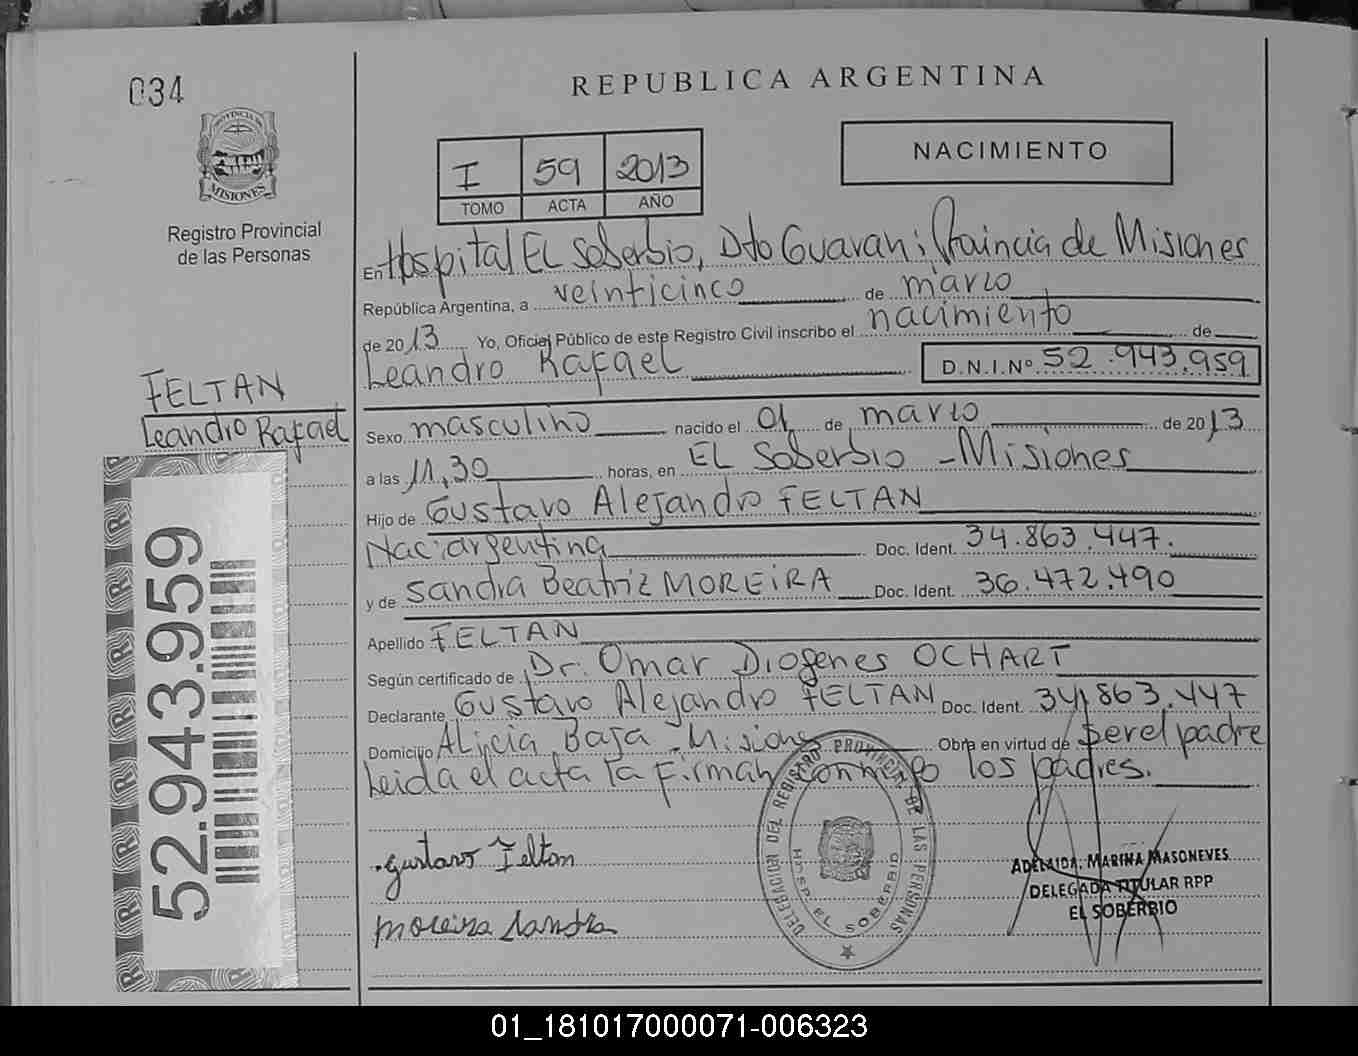 034
PROVINCIA DE
MISIONES
Registro Provincial
de las Personas
FELTAN
Leandro Rafael
52.943.959
REPUBLICA ARGENTINA
I 59 2013
TOMO ACTA AÑO
NACIMIENTO
En Hospital EL Soberbio, Dto Guarani; Provincia de Misiones
República Argentina, a veinticinco de marzo
de 2013 Yo, Oficial Público de este Registro Civil inscribo el nacimiento de
Leandro Rafael D.N.I.Nº 52.943.959
Sexo masculino nacido el 01 de marzo de 2013
a las 11,30 horas, en EL Soberbio - Misiones
Hijo de Gustavo Alejandro FELTAN
Nac: argentina Doc. Ident. 34.863.447.
y de Sandra Beatriz MOREIRA Doc. Ident. 36.472.490
Apellido FELTAN
Según certificado de Dr. Omar Diogenes OCHART
Declarante Gustavo Alejandro FELTAN Doc. Ident. 34.863.447
Domicilio Alicia Baja - Misiones Obra en virtud de ser el padre
Leida el acta la firman conmigo los padres.
Gustavo Feltan
Moreira Sandra
DELEGACION DEL REGISTRO PROVINCIAL DE LAS PERSONAS
HOSP. EL SOBERBIO
ADELAIDA MARINA MASONEVES
DELEGADA TITULAR RPP
EL SOBERBIO
01_181017000071-006323